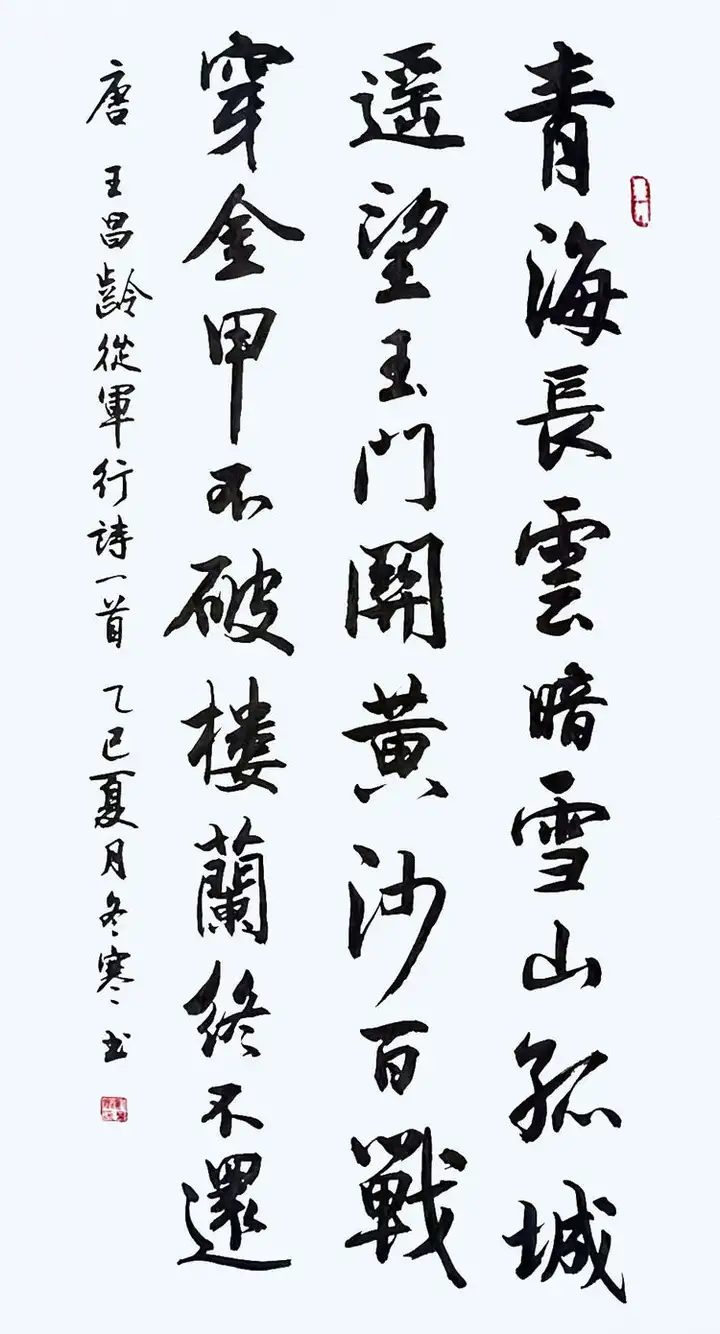 青海長雲暗雪山孤城
遥望玉門關黄沙百戰
穿金甲不破楼蘭終不還
唐 王昌齡從軍行詩一首 乙巳夏月冬寒书